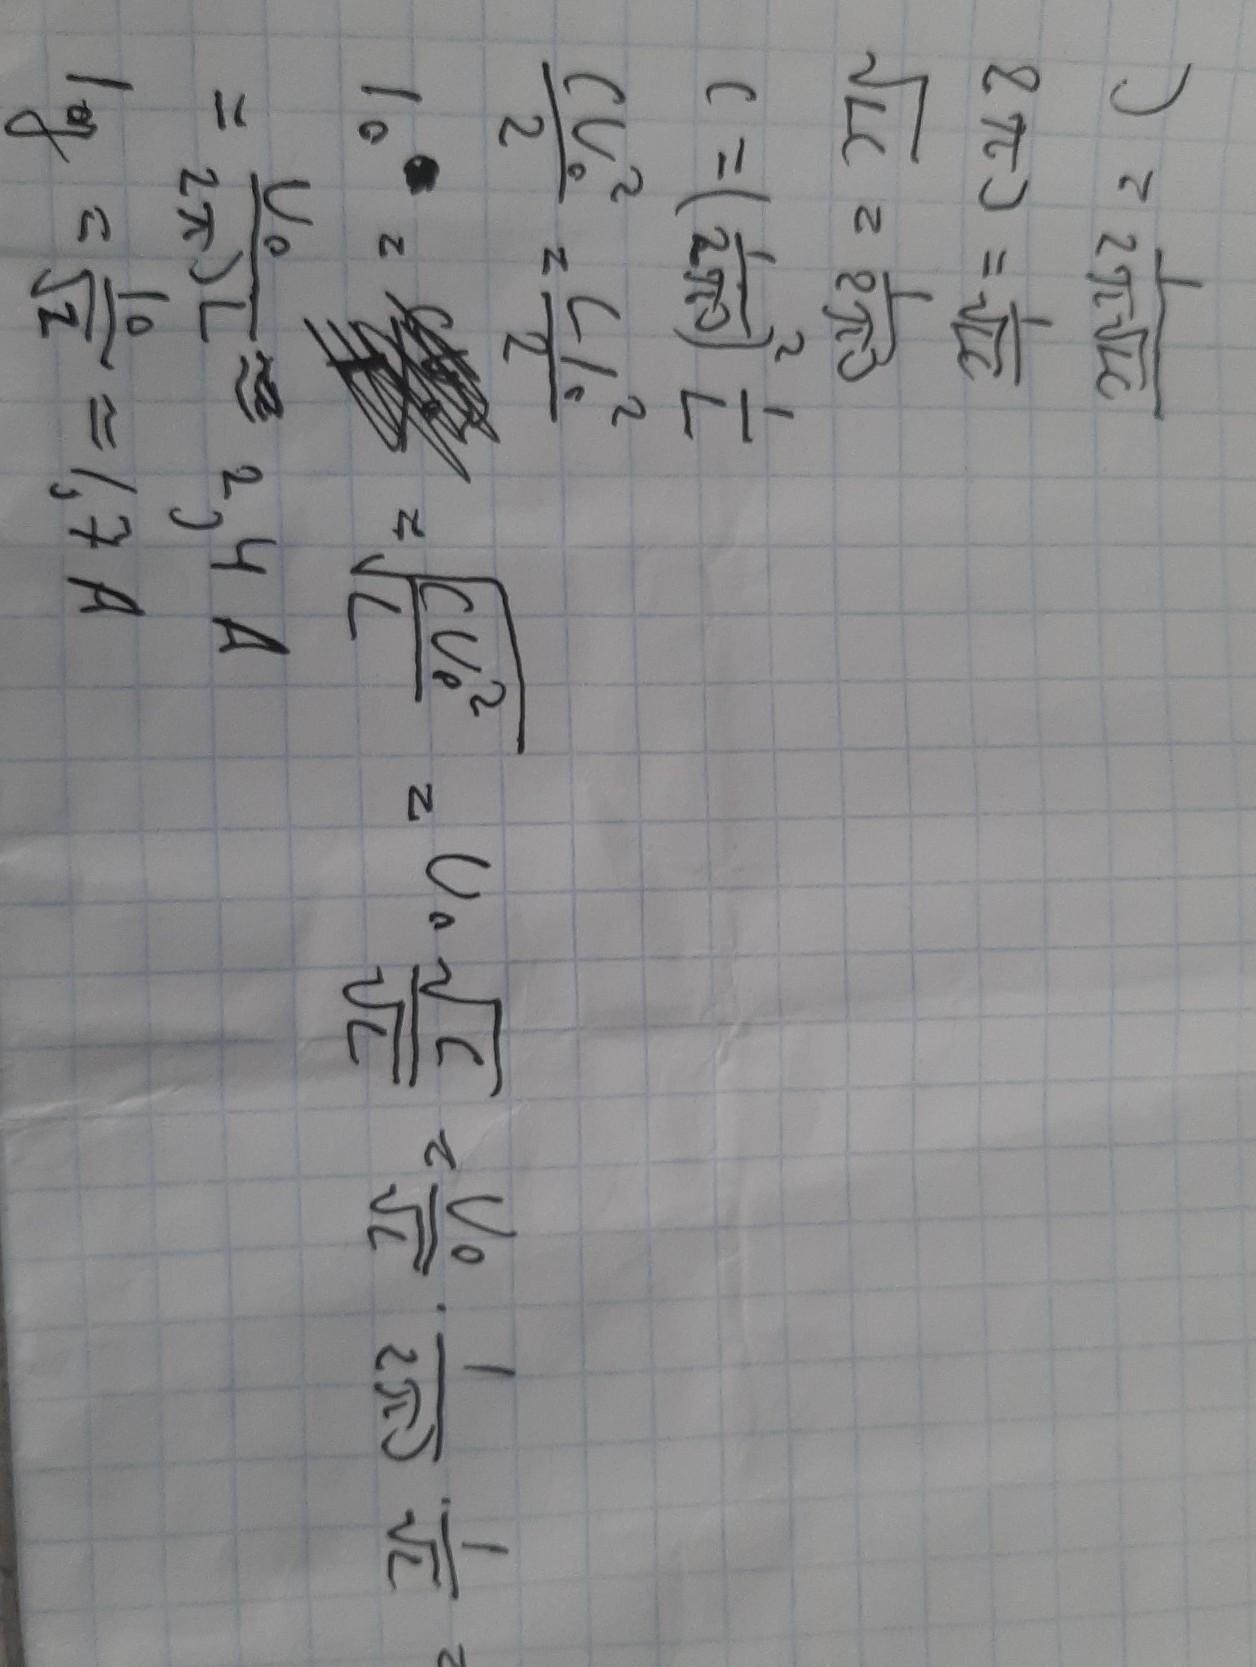 ν = 1/(2π√LC)
2πν = 1/√LC
√LC = 1/(2πν)
C = (1/(2πν))² 1/L
CU₀²/2 = LI₀²/2
I₀ = = √(CU₀²/L) = U₀ √C/√L = U₀/√L · 1/(2πν) · 1/√L =
= U₀/(2πνL) ≈ 2,4 A
Iд = I₀/√2 = 1,7 A